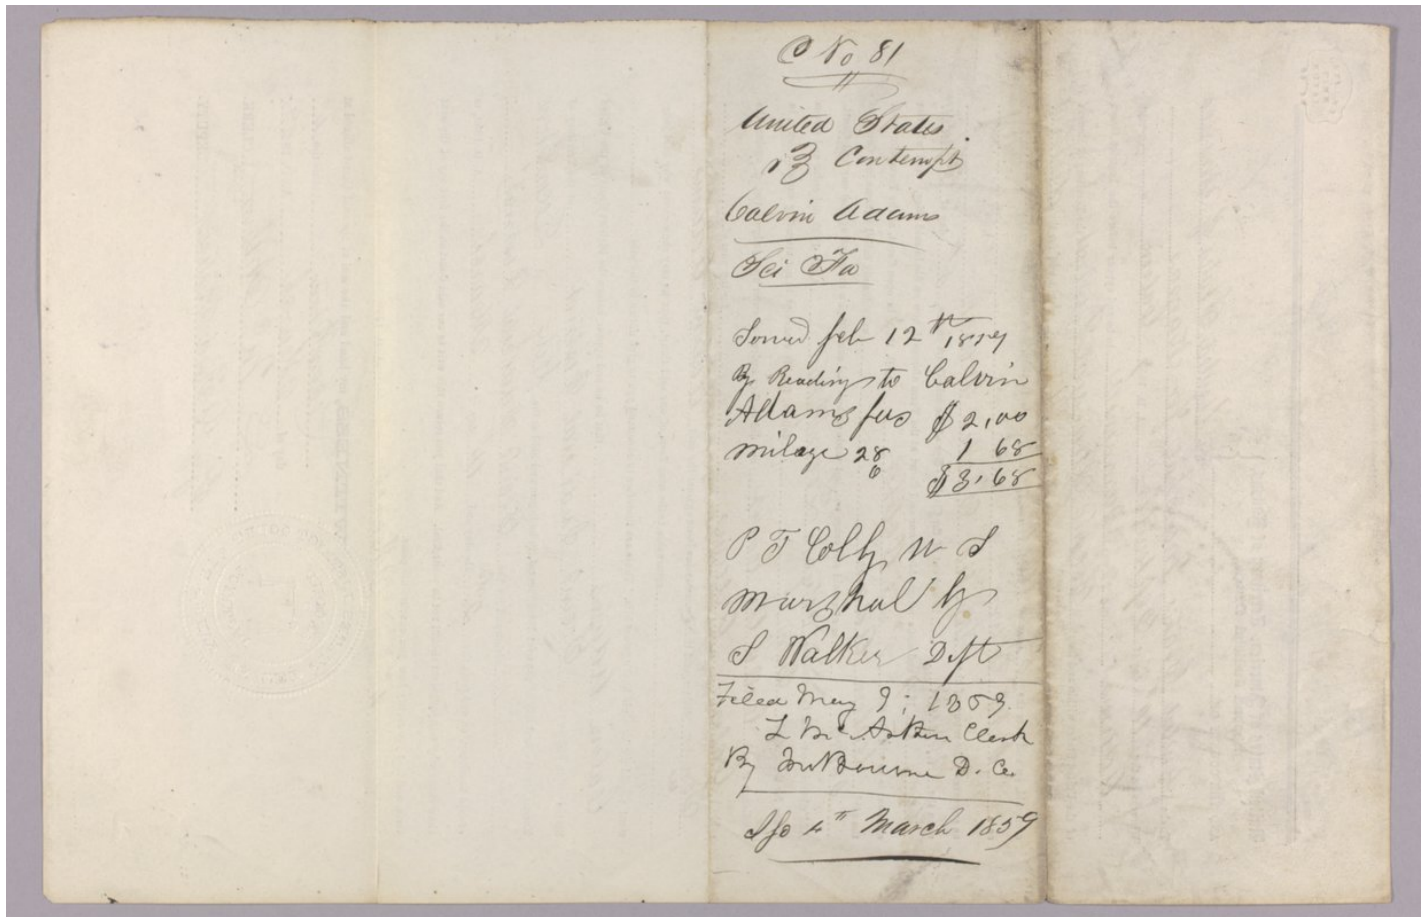 C No 81
United States
vs } Contempt
Calvin Adams
Sci Fa
Served feb 12th 1859
By Reading to Calvin
Adams fees $2,00
milage 28 1 68
6 $3,68
P T Colby U S
Marshal by
S Walker Dpt
Filed May 9; 1859.
Clerk
By D. C.
Iss 4th March 1859